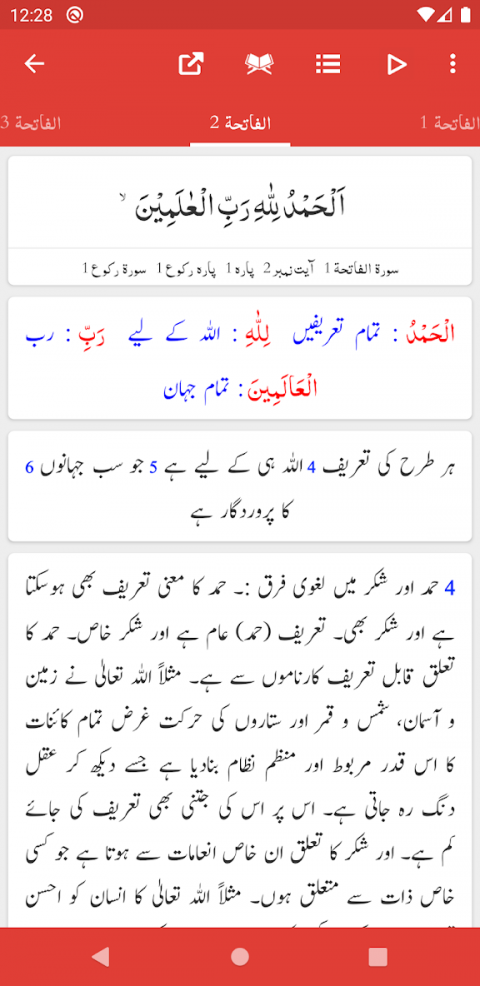 12:28
الفاتحة 1
الفاتحة 2
الفاتحة 3
اَلْحَمْدُ لِلّٰهِ رَبِّ الْعٰلَمِیْنَ ۙ
سورة الفاتحة 1 آیت نمبر 2 پارہ 1 پارہ رکوع 1 سورة رکوع 1
الْحَمْدُ : تمام تعریفیں لِلّٰهِ : اللہ کے لیے رَبِّ : رب
الْعَالَمِينَ : تمام جہان
ہر طرح کی تعریف 4 اللہ ہی کے لیے ہے 5 جو سب جہانوں 6
کا پروردگار ہے
4 حمد اور شکر میں لغوی فرق :۔ حمد کا معنی تعریف بھی ہوسکتا
ہے اور شکر بھی۔ تعریف (حمد) عام ہے اور شکر خاص۔ حمد کا
تعلق قابل تعریف کارناموں سے ہے۔ مثلاً اللہ تعالیٰ نے زمین
و آسمان، شمس و قمر اور ستاروں کی حرکت غرض تمام کائنات
کا اس قدر مربوط اور منظم نظام بنادیا ہے جسے دیکھ کر عقل
دنگ رہ جاتی ہے۔ اس پر اس کی جتنی بھی تعریف کی جائے
کم ہے۔ اور شکر کا تعلق ان خاص انعامات سے ہوتا ہے جو کسی
خاص ذات سے متعلق ہوں۔ مثلاً اللہ تعالیٰ کا انسان کو احسن